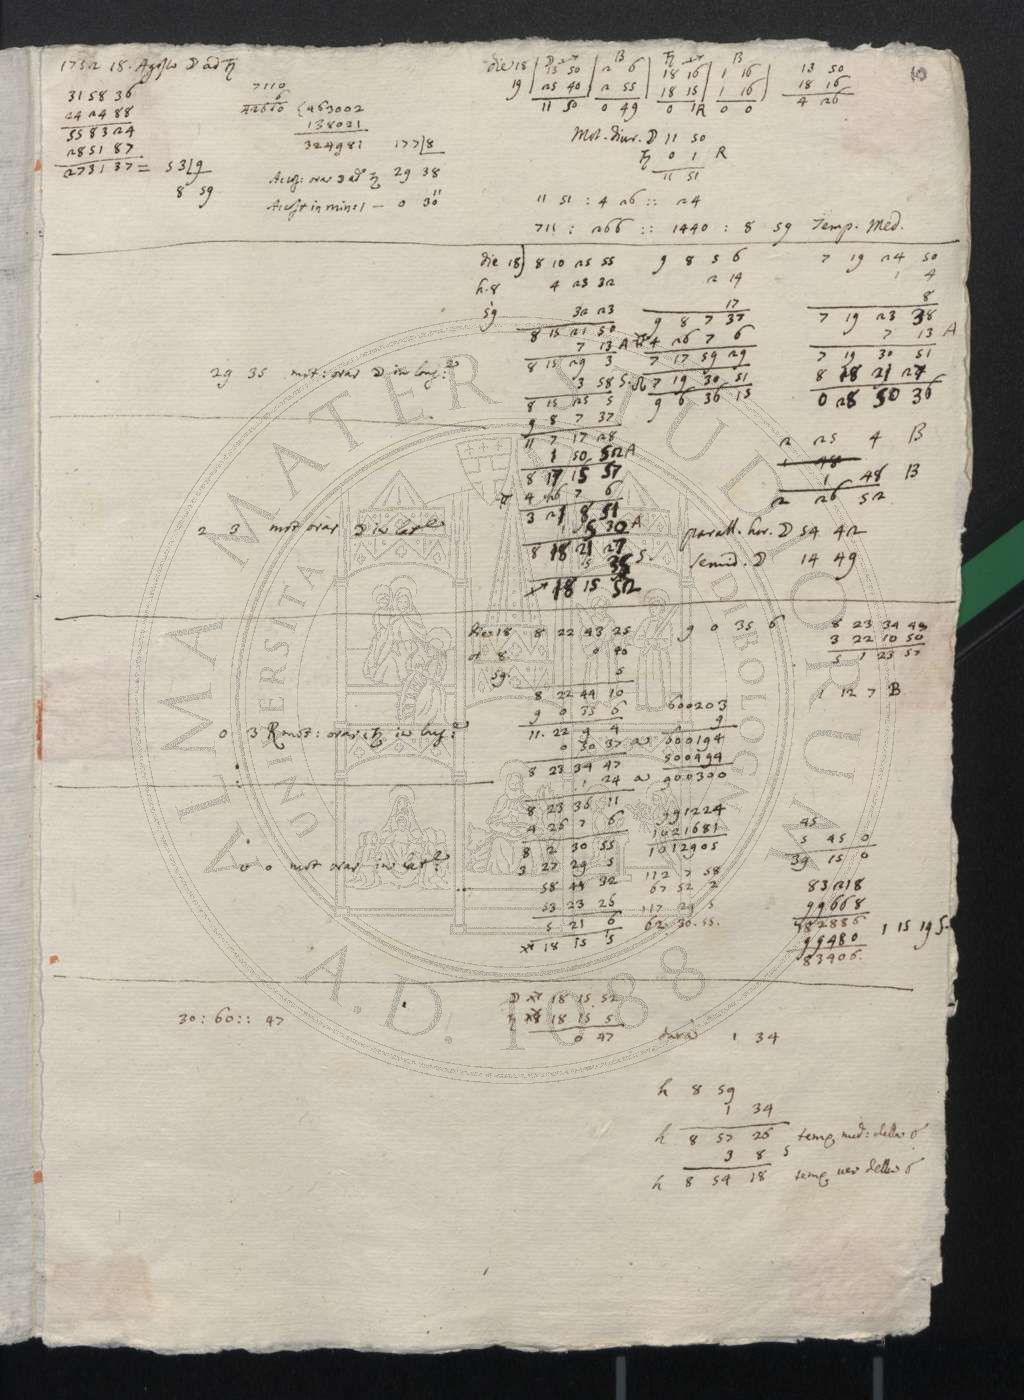 1752 18. Agosto ☽ ad ♄
315836
242488
558324
285187
273137 = 53|9
8 59
7110
6
42660
463002
138021
324981 177|8
Accos: orar ☽ ad ♄ 29 38
Accost in min: 1 — 0 30"
die 18 | 13 50 | 2 6 | 18 16 | 1 16
19 | 25 40 | 2 55 | 18 15 | 1 16
11 50 0 49 0 1R 0 0
13 50
18 16
4 26
Mot. diur. ☽ 11 50
♄ 0 1 R
11 51
11 51 : 4 26 :: 24
711 : 266 :: 1440 : 8 59 Temp. Med.
die 18 8 10 25 55
h. 8 4 23 32
59 32 23
8 15 21 50
7 13 A
8 15 29 3
3 58 S.
8 15 25 5
9 8 7 37
11 7 17 28
1 50 52 A
8 17 15 57
4 26 7 6
3 21 8 51
5 30 A
8 18 21 27
5 35 S.
18 15 52
9 8 5 6
2 14
17
9 8 7 37
4 26 7 6
7 17 59 29
☊ 7 19 30 51
9 6 36 15
7 19 24 50
1 4
8
7 19 23 38
7 13 A
7 19 30 51
8 18 21 27
0 28 50 36
2 25 4 B
1 48
1 48 B
2 26 52
29 35 mot: orar ☽ in long:
2 3 mot orar ☽ in lat
parall. hor. ☽ 54 42
semid. ☽ 14 49
die 18 8 22 43 25
or 8. 0 40
59. 5
8 22 44 10
9 0 35 6
11. 22 9 4
0 50 37 a
8 23 34 47
1 24 a
8 23 36 11
4 26 7 6
8 2 30 55
3 27 29 5
58 44 32
53 23 26
5 21 6
18 15 5
9 0 35 6
600203
9
600194
500494
900300
991224
1021681
1012905
112 7 58
67 52 2
117 29 5
62. 30. 55.
8 23 34 48
3 22 10 50
5 1 23 57
1 12 7 B
45
5 45 0
39 15 0
83218
99668
182886
99480
83406.
1 15 19 S.
0 3 R mot: orar: ♄ in long:
0 0 mot orar in lat
30 : 60 :: 47
☽ 18 15 52
♄ 18 15 5
0 47 darà 1 34
h 8 59
1 34
h 8 57 26 temp med: della ☌
3 8 S
h 8 54 18 temp ver della ☌
10
ALMA MATER STUDIORUM
A.D. 1088